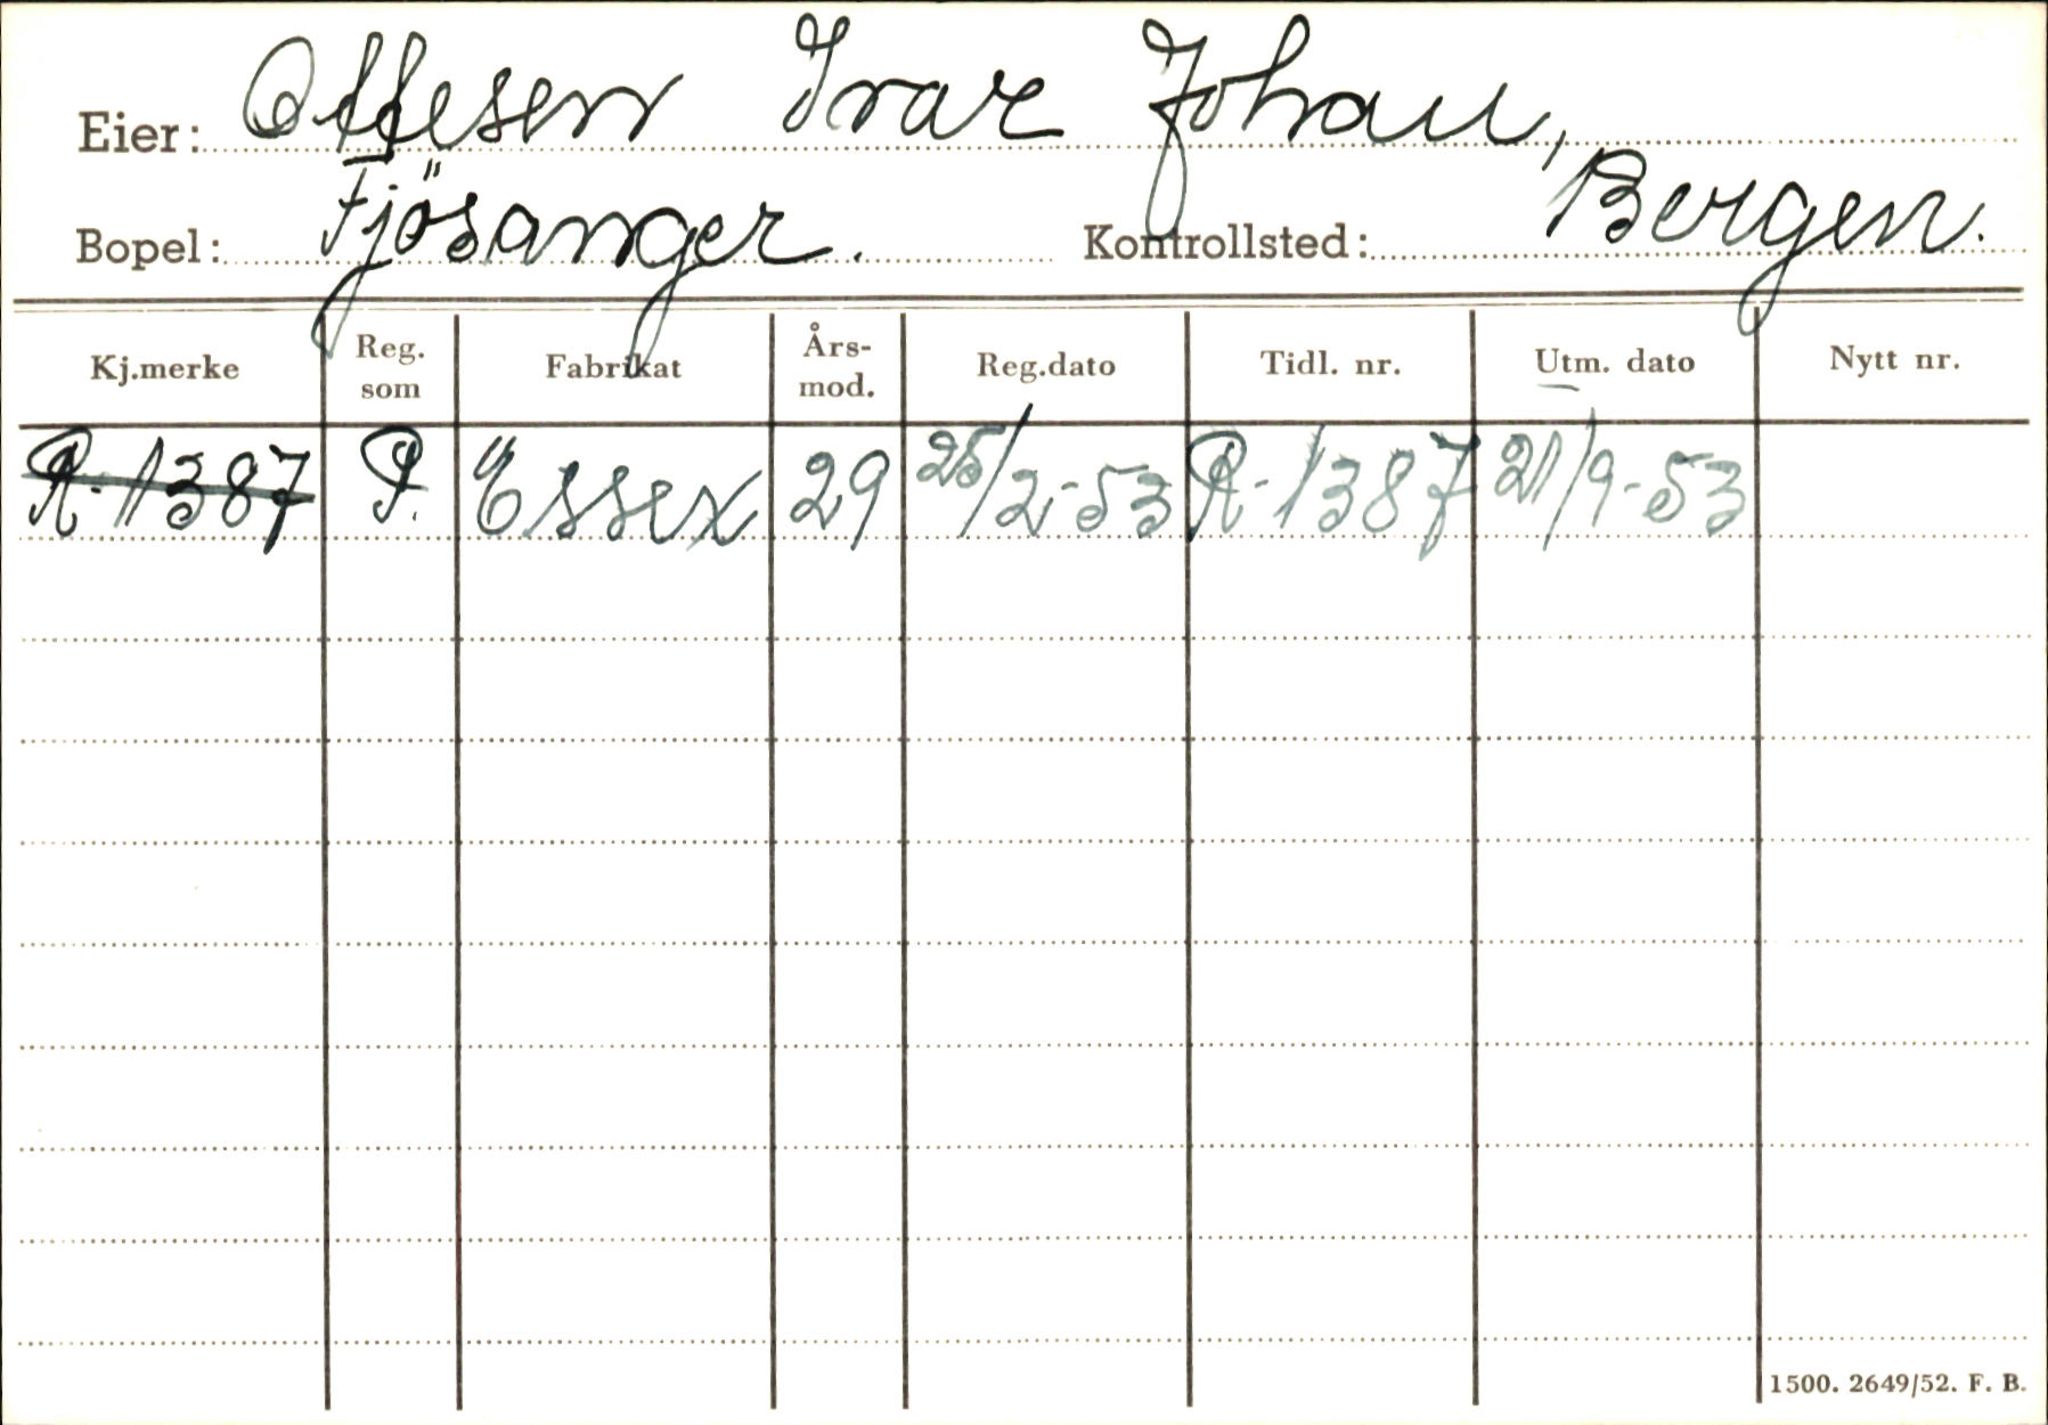 Eier: Ottesen Ivar Johan,
Bopel: Fjösanger. Kontrollsted: Bergen.
Kj.merke Reg. som Fabrikat Års-mod. Reg.dato Tidl. nr. Utm. dato Nytt nr.
R-1387 P. Essex 29 25/2-53 R-1387 21/9-53
1500. 2649/52. F. B.